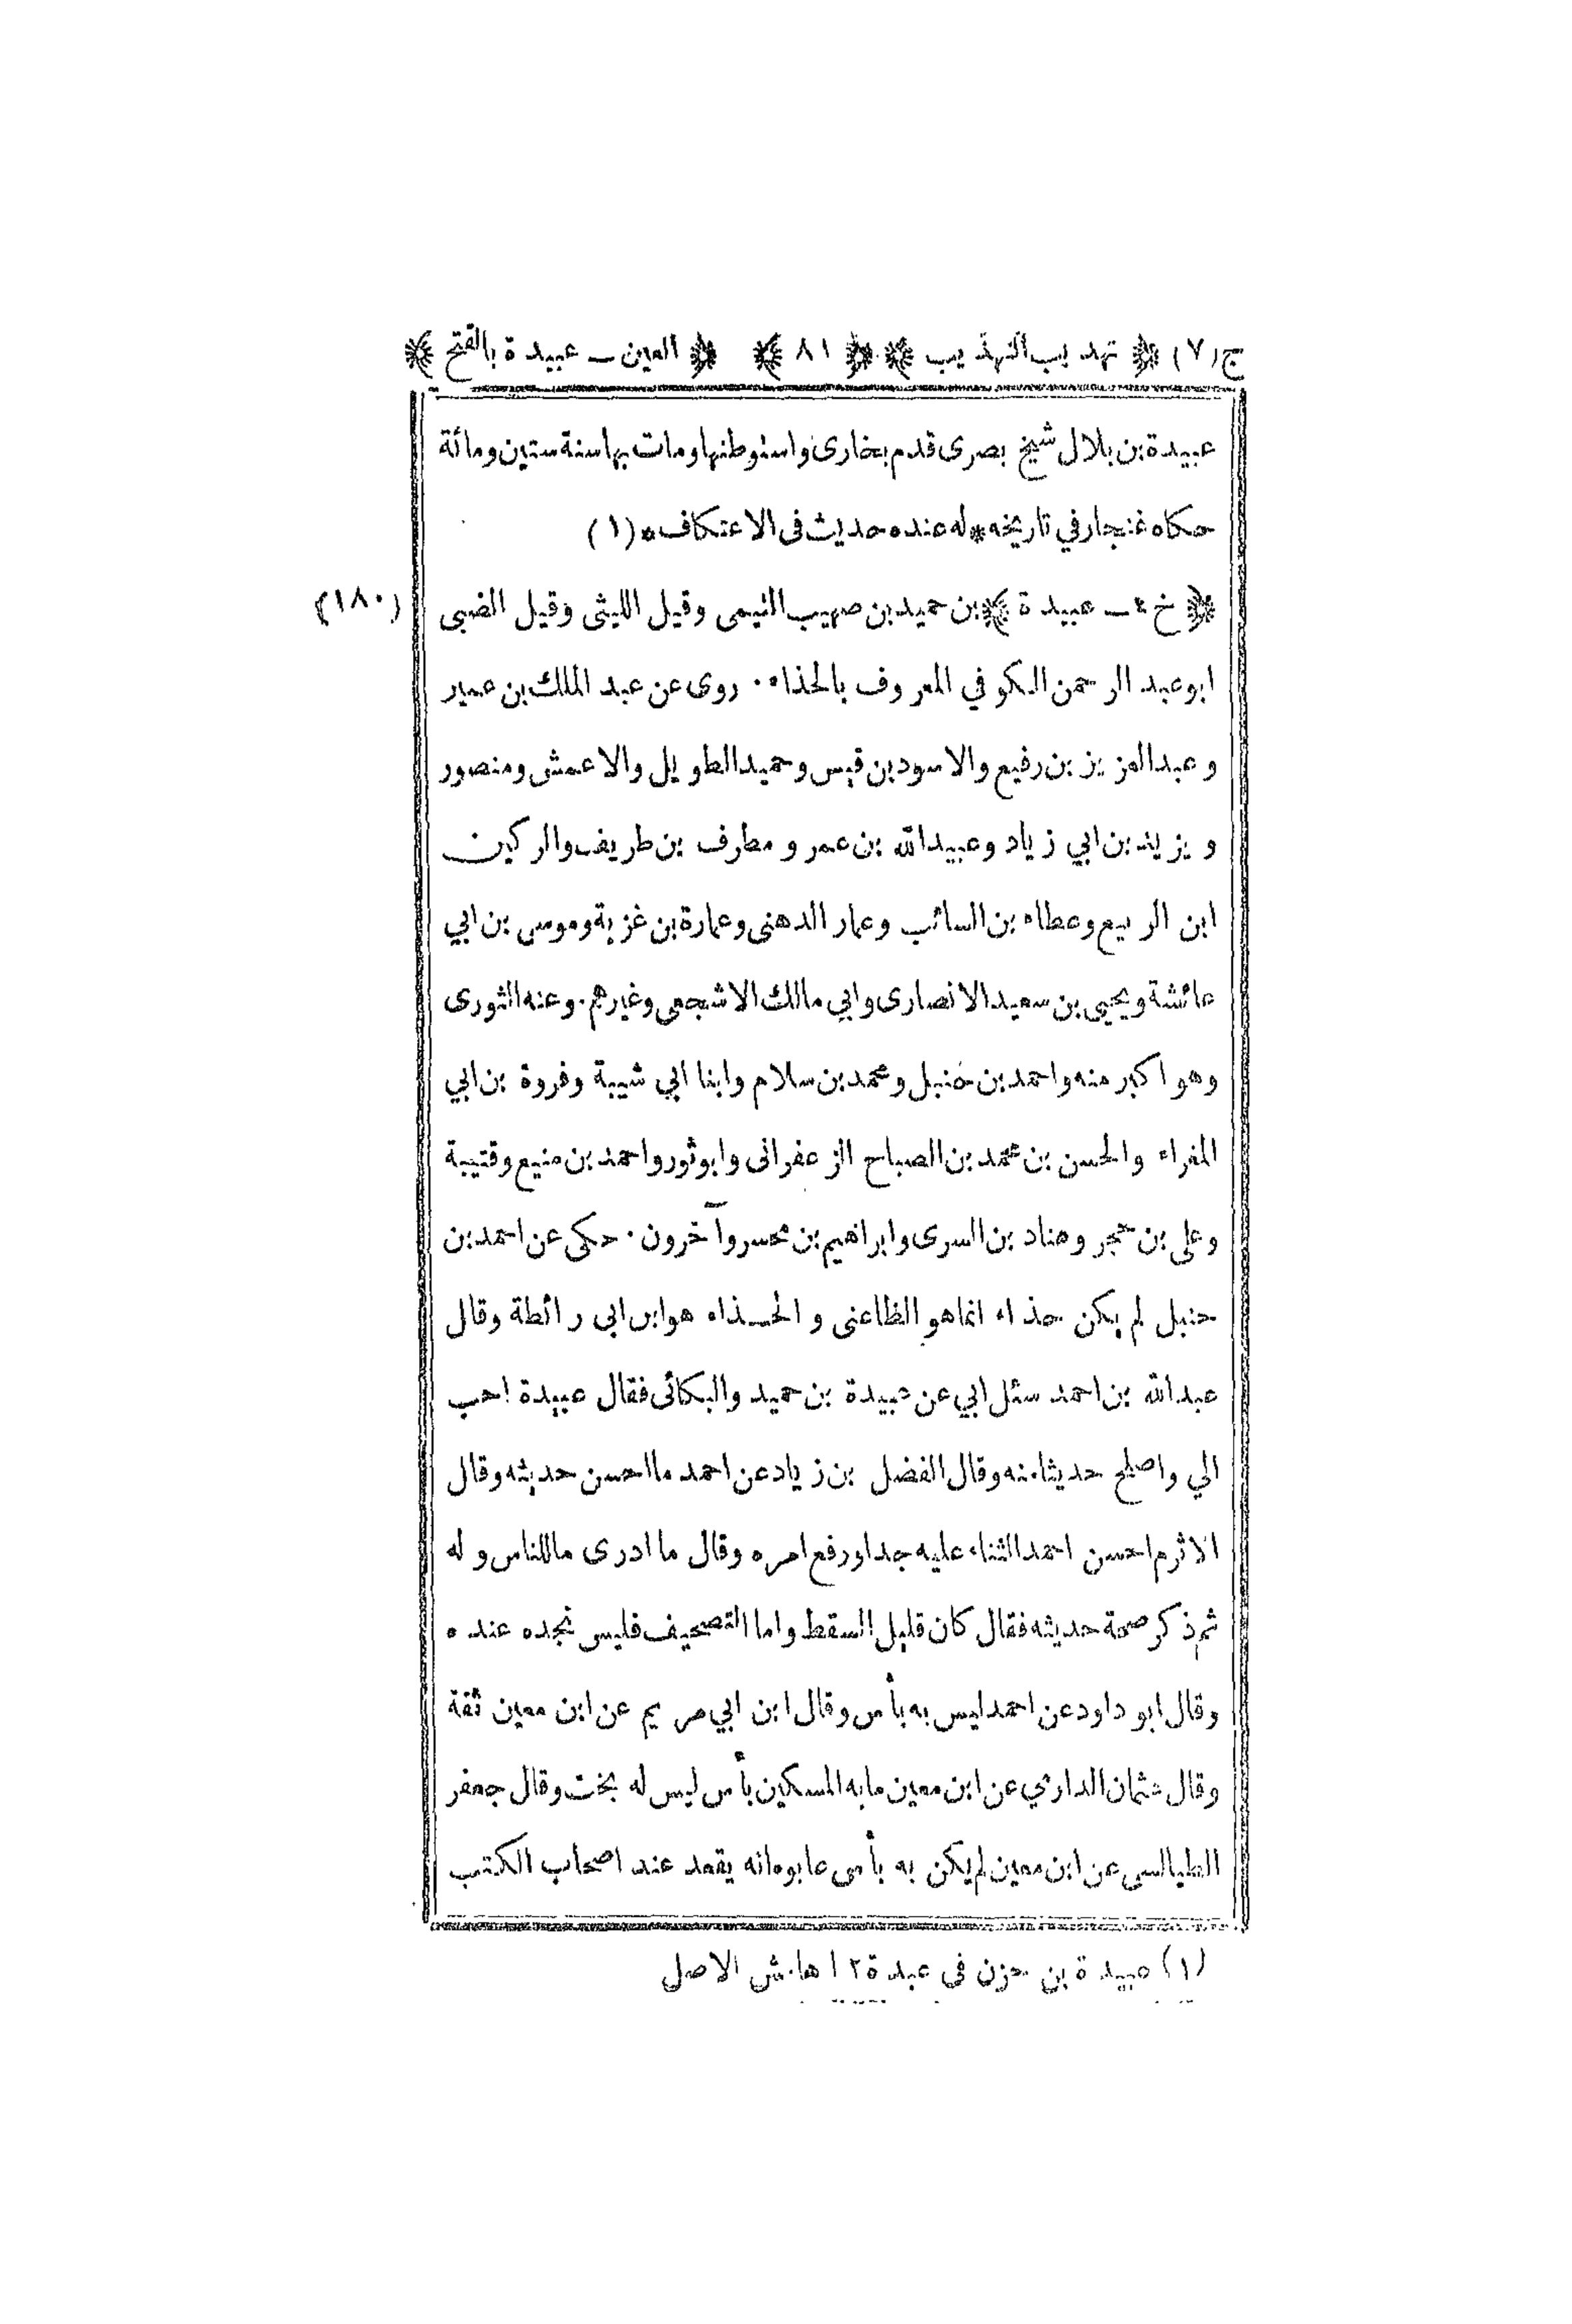 ج(٧) ﴿ تهذيب التهذيب ﴾ ﴿ ٨١ ﴾ ﴿ العين ـ عبيدة بالفتح ﴾
عبيدة بن بلال شيخ بصرى قدم بخارى واستوطنها ومات بها سنة ستين ومائة
حكاه غنجار في تاريخه * له عنده حديث فى الاعتكاف * (١)
(١٨٠)
﴿ خ ٤ ـ عبيدة ﴾ بن حميد بن صهيب التيمى وقيل الليثى وقيل الضبى
ابو عبد الرحمن الكوفي المعروف بالحذاء ٠ روى عن عبد الملك بن عمير
وعبد العزيز بن رفيع والاسود بن قيس وحميد الطويل والاعمش ومنصور
ويزيد بن ابي زياد وعبيدالله بن عمر ومطرف بن طريف والركين
ابن الربيع وعطاء بن السائب وعمار الدهنى وعمارة بن غزية وموسى بن ابي
عائشة ويحيى بن سعيد الانصارى وابي مالك الاشجعى وغيرهم ٠ وعنه الثورى
وهو اكبر منه واحمد بن حنبل ومحمد بن سلام وابنا ابي شيبة وفروة بن ابي
المغراء والحسن بن محمد بن الصباح الزعفرانى وابو ثور واحمد بن منيع وقتيبة
وعلى بن حجر وهناد بن السرى وابراهيم بن مجشر وآخرون ٠ حكى عن احمد بن
حنبل لم يكن حذاء انما هو الظاعنى والحـذاء هو ابن ابى رائطة وقال
عبدالله بن احمد سئل ابي عن عبيدة بن حميد والبكائى فقال عبيدة احب
الي واصلح حديثا منه وقال الفضل بن زياد عن احمد ما احسن حديثه وقال
الاثرم احسن احمد الثناء عليه جدا ورفع امره وقال ما ادرى ما للناس وله
ثم ذكر صحة حديثه فقال كان قليل السقط واما التصحيف فليس نجده عنده
وقال ابو داود عن احمد ليس به بأس وقال ابن ابي مريم عن ابن معين ثقة
وقال عثمان الدارمي عن ابن معين ما به المسكين بأس ليس له بخت وقال جعفر
الطيالسى عن ابن معين لم يكن به بأس عابوه انه يقعد عند اصحاب الكتب
(١) عبيدة بن حزن فى عبدة ١٢ هامش الاصل